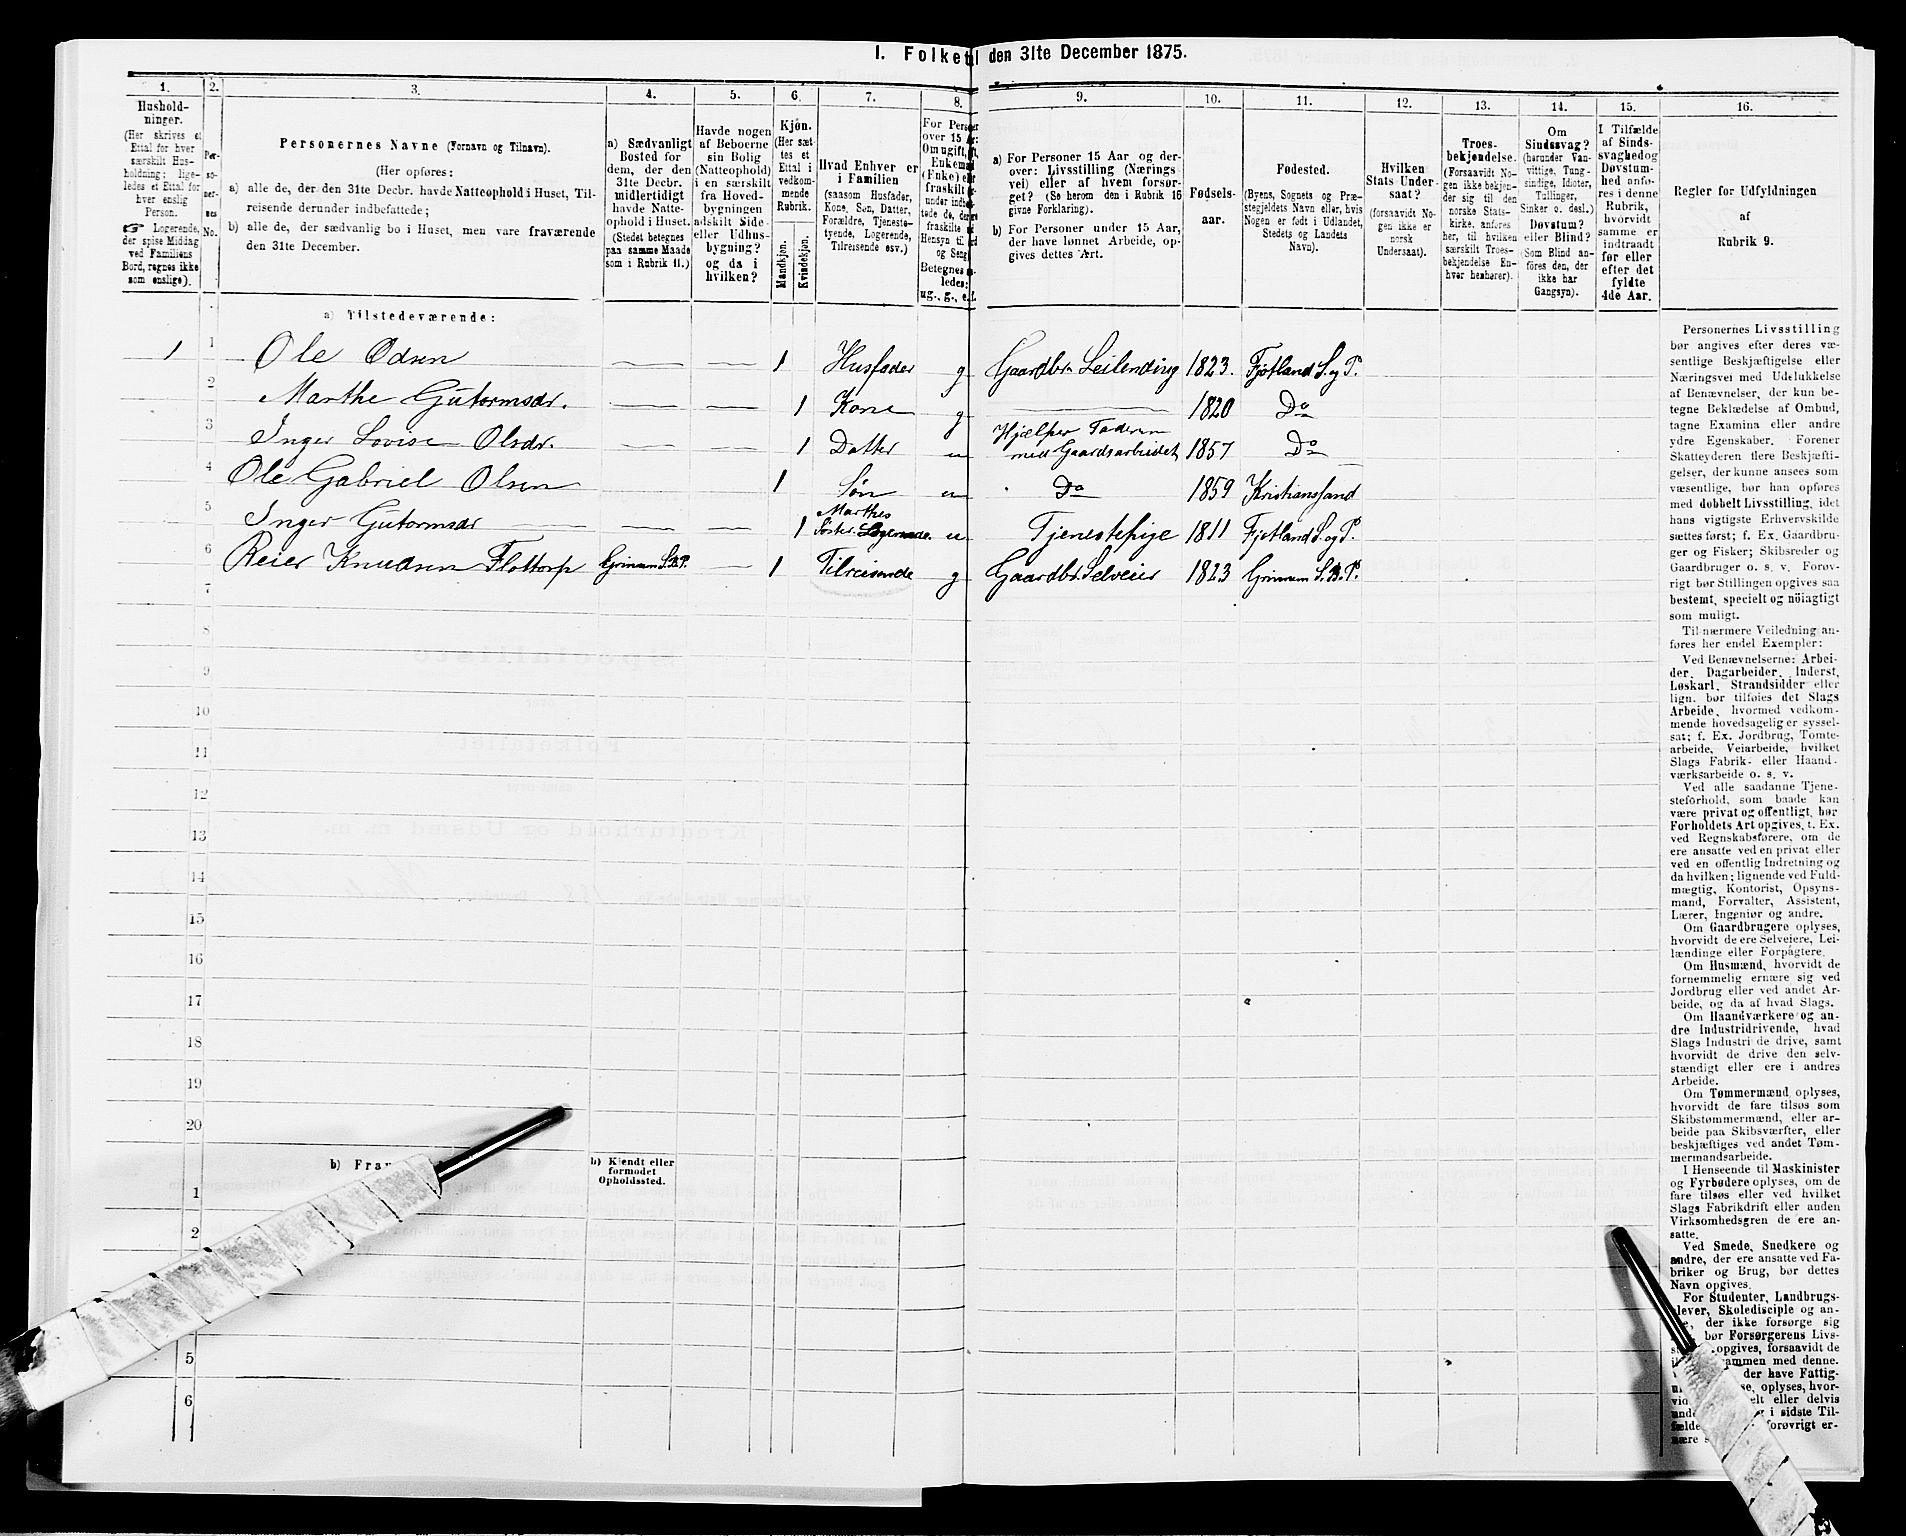 I. Folket den 31te December 1875.
1. 2. 3. 4. 5. 6. 7. 8. 9. 10. 11. 12. 13. 14. 15. 16.
Hushold-
ninger.
(Her skrives et
Ettal for hver
særskilt Hus-
holdning; lige-
ledes et Ettal for
hver enslig
Person.
☞ Logerende,
der spise Middag
ved Familiens
Bord, regnes ikke
som enslige).
Per-
so-
ner-
nes
No.
Personernes Navne (Fornavn og Tilnavn).
(Her opføres:
a) alle de, der den 31te Decbr. havde Natteophold i Huset, Til-
reisende derunder indbefattede;
b) alle de, der sædvanlig bo i Huset, men vare fraværende
den 31te December.
a) Sædvanligt
Bosted for
dem, der den
31te Decbr.
midlertidigt
havde Natte-
ophold i Huset.
(Stedet betegnes
paa samme Maade
som i Rubrik 11.)
Havde nogen
af Beboerne
sin Bolig
(Natteophold)
i en særskilt
fra Hoved-
bygningen
adskilt Side-
eller Udhus-
bygning?
og da i
hvilken?
Kjøn.
(Her sæt-
tes et
Ettal i
vedkom-
mende
Rubrik.
Mandkjøn.
Kvindekjøn.
Hvad Enhver er
i Familien
(saasom Husfader,
Kone, Søn, Datter,
Forældre, Tjeneste-
tyende, Logerende,
Tilreisende osv.)
For Perso
over 15 A
Om ugift,
Enkema
(Enke) e
fraskilt
Betegnes
ledes:
ug., g., e., f.
a) For Personer 15 Aar og der-
over: Livsstilling (Nærings-
vei) eller af hvem forsør-
get? (Se herom den i Rubrik 16
givne Forklaring).
b) For Personer under 15 Aar,
der have lønnet Arbeide, op-
gives dettes Art.
Fødsels-
aar.
Fødested.
(Byens, Sognets og Præ-
stegjeldets Navn eller, hvis
Nogen er født i Udlandet,
Stedets og Landets
Navn).
Hvilken
Stats Under-
saat?
(forsaavidt No-
gen ikke er
norsk
Undersaat).
Troes-
bekjendelse.
(Forsaavidt No-
gen ikke bekjen-
der sig til den
norske Stats-
kirke, anføres
her, til hvilken
særskilt Troes-
bekjendelse En-
hver henhører).
Om
Sindssvag?
(herunder Van-
vittige, Tung-
sindige, Idioter,
Tullinger,
Sinker o. desl.)
Døvstum?
eller Blind?
(Som Blind an-
føres den, der
ikke har
Gangsyn).
I Tilfælde
af Sinds-
svaghed og
Døvstum-
hed anfø-
res i denne
Rubrik,
hvorvidt
samme er
indtraadt
før eller
efter det
fyldte
4de Aar.
Regler for Udfyldningen
af
Rubrik 9.
a) Tilstedeværende:
1 1 Ole Odsen — — 1 Husfader g Gaardbr. Leilending 1823. Fjotland S. og P.
2 Marthe Gutormsdr. — — 1 Kone g — 1820 Do
3 Inger Lovise Olsdr. — — 1 Datter u Hjælper Faderen
med Gaardsarbeidet 1857 Do
4 Ole Gabriel Olsen 1 Søn u Do 1859 Kristianssand
5 Inger Gutormsdr — — 1 Marthes
Søster. Logerende. u Tjenestepige 1811 Fjotland S. og P.
6 Reier Knudsen Flottorp Grinum S. & P. — 1 Tilreisende g Gaardbr. Selveier 1823 Grinum S. & P.
7
8
9
10
11
12
13
14
15
16
17
18
19
20
b) Fra
b) Kjendt eller
formodet
Opholdssted.
1
2
5
6
Personernes Livsstilling
bør angives efter deres væ-
sentlige Beskjæftigelse eller
Næringsvei med Udelukkelse
af Benævnelser, der kun be-
tegne Beklædelse af Ombud,
tagne Examina eller andre
ydre Egenskaber. Forener
Skatteyderen flere Beskjæfti-
gelser, der kunne ansees som
væsentlige, bør han opføres
med dobbelt Livsstilling, idet
hans vigtigste Erhvervskilde
sættes først; f. Ex. Gaardbru-
ger og Fisker; Skibsreder og
Gaardbruger o. s. v. Forøv-
rigt bør Stillingen opgives saa
bestemt, specielt og nöiagtigt
som muligt.
Til nærmere Veiledning an-
føres her endel Exempler:
Ved Benævnelserne: Arbei-
der, Dagarbeider, Inderst,
Løskarl, Strandsidder eller
lign. bør tilføies det Slags
Arbeide, hvormed vedkom-
mende hovedsagelig er syssel-
sat; f. Ex. Jordbrug, Tomte-
arbeide, Veiarbeide, hvilket
Slags Fabrik- eller Haand-
værksarbeide o. s. v.
Ved alle saadanne Tjene-
steforhold, som baade kan
være privat og offentligt, bør
Forholdets Art opgives, t. Ex.
ved Regnskabsførere, om de
ere ansatte ved en privat eller
ved en offentlig Indretning og
da hvilken; lignende ved Fuld-
mægtig, Kontorist, Opsyns-
mand, Forvalter, Assistent,
Lærer, Ingeniør og andre.
Om Gaardbrugere oplyses,
hvorvidt de ere Selveiere, Lei-
lændinge eller Forpagtere.
Om Husmænd, hvorvidt de
fornemmelig ernære sig ved
Jordbrug eller ved andet Ar-
beide, og da af hvad Slags.
Om Haandværkere og an-
dre Industridrivende, hvad
Slags Industri de drive, samt
hvorvidt de drive den selv-
stændigt eller ere i andres
Arbeide.
Om Tømmermænd oplyses,
hvorvidt de fare tilsøs som
Skibstømmermænd, eller ar-
beide paa Skibsværfter, eller
beskjæftiges ved andet Tøm-
mermandsarbeide.
I Henseende til Maskinister
og Fyrbødere oplyses, om de
fare tilsøs eller ved hvilket
Slags Fabrikdrift eller anden
Virksomhedsgren de ere an-
satte.
Ved Smede, Snedkere og
andre, der ere ansatte ved Fa-
briker og Brug, bør dettes
Navn opgives.
For Studenter, Landbrugs-
elever, Skoledisciple og an-
der ikke forsørge sig
bør Forsørgerens Livs-
opgives, forsaavidt de
ammen med denne.
der have Fattig-
oplyses, hvor-
elt eller delvis
i sidste Til-
forøvrigt er-